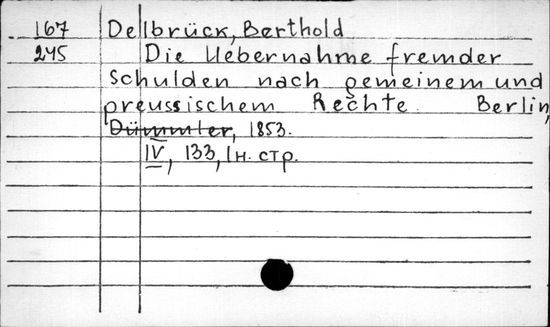 167 Delbrück, Berthold
245 Die Uebernahme fremder
Schulden nach gemeinem und
preussischem Rechte Berlin,
Dümmler, 1853.
IV, 133, 1 н. стр.